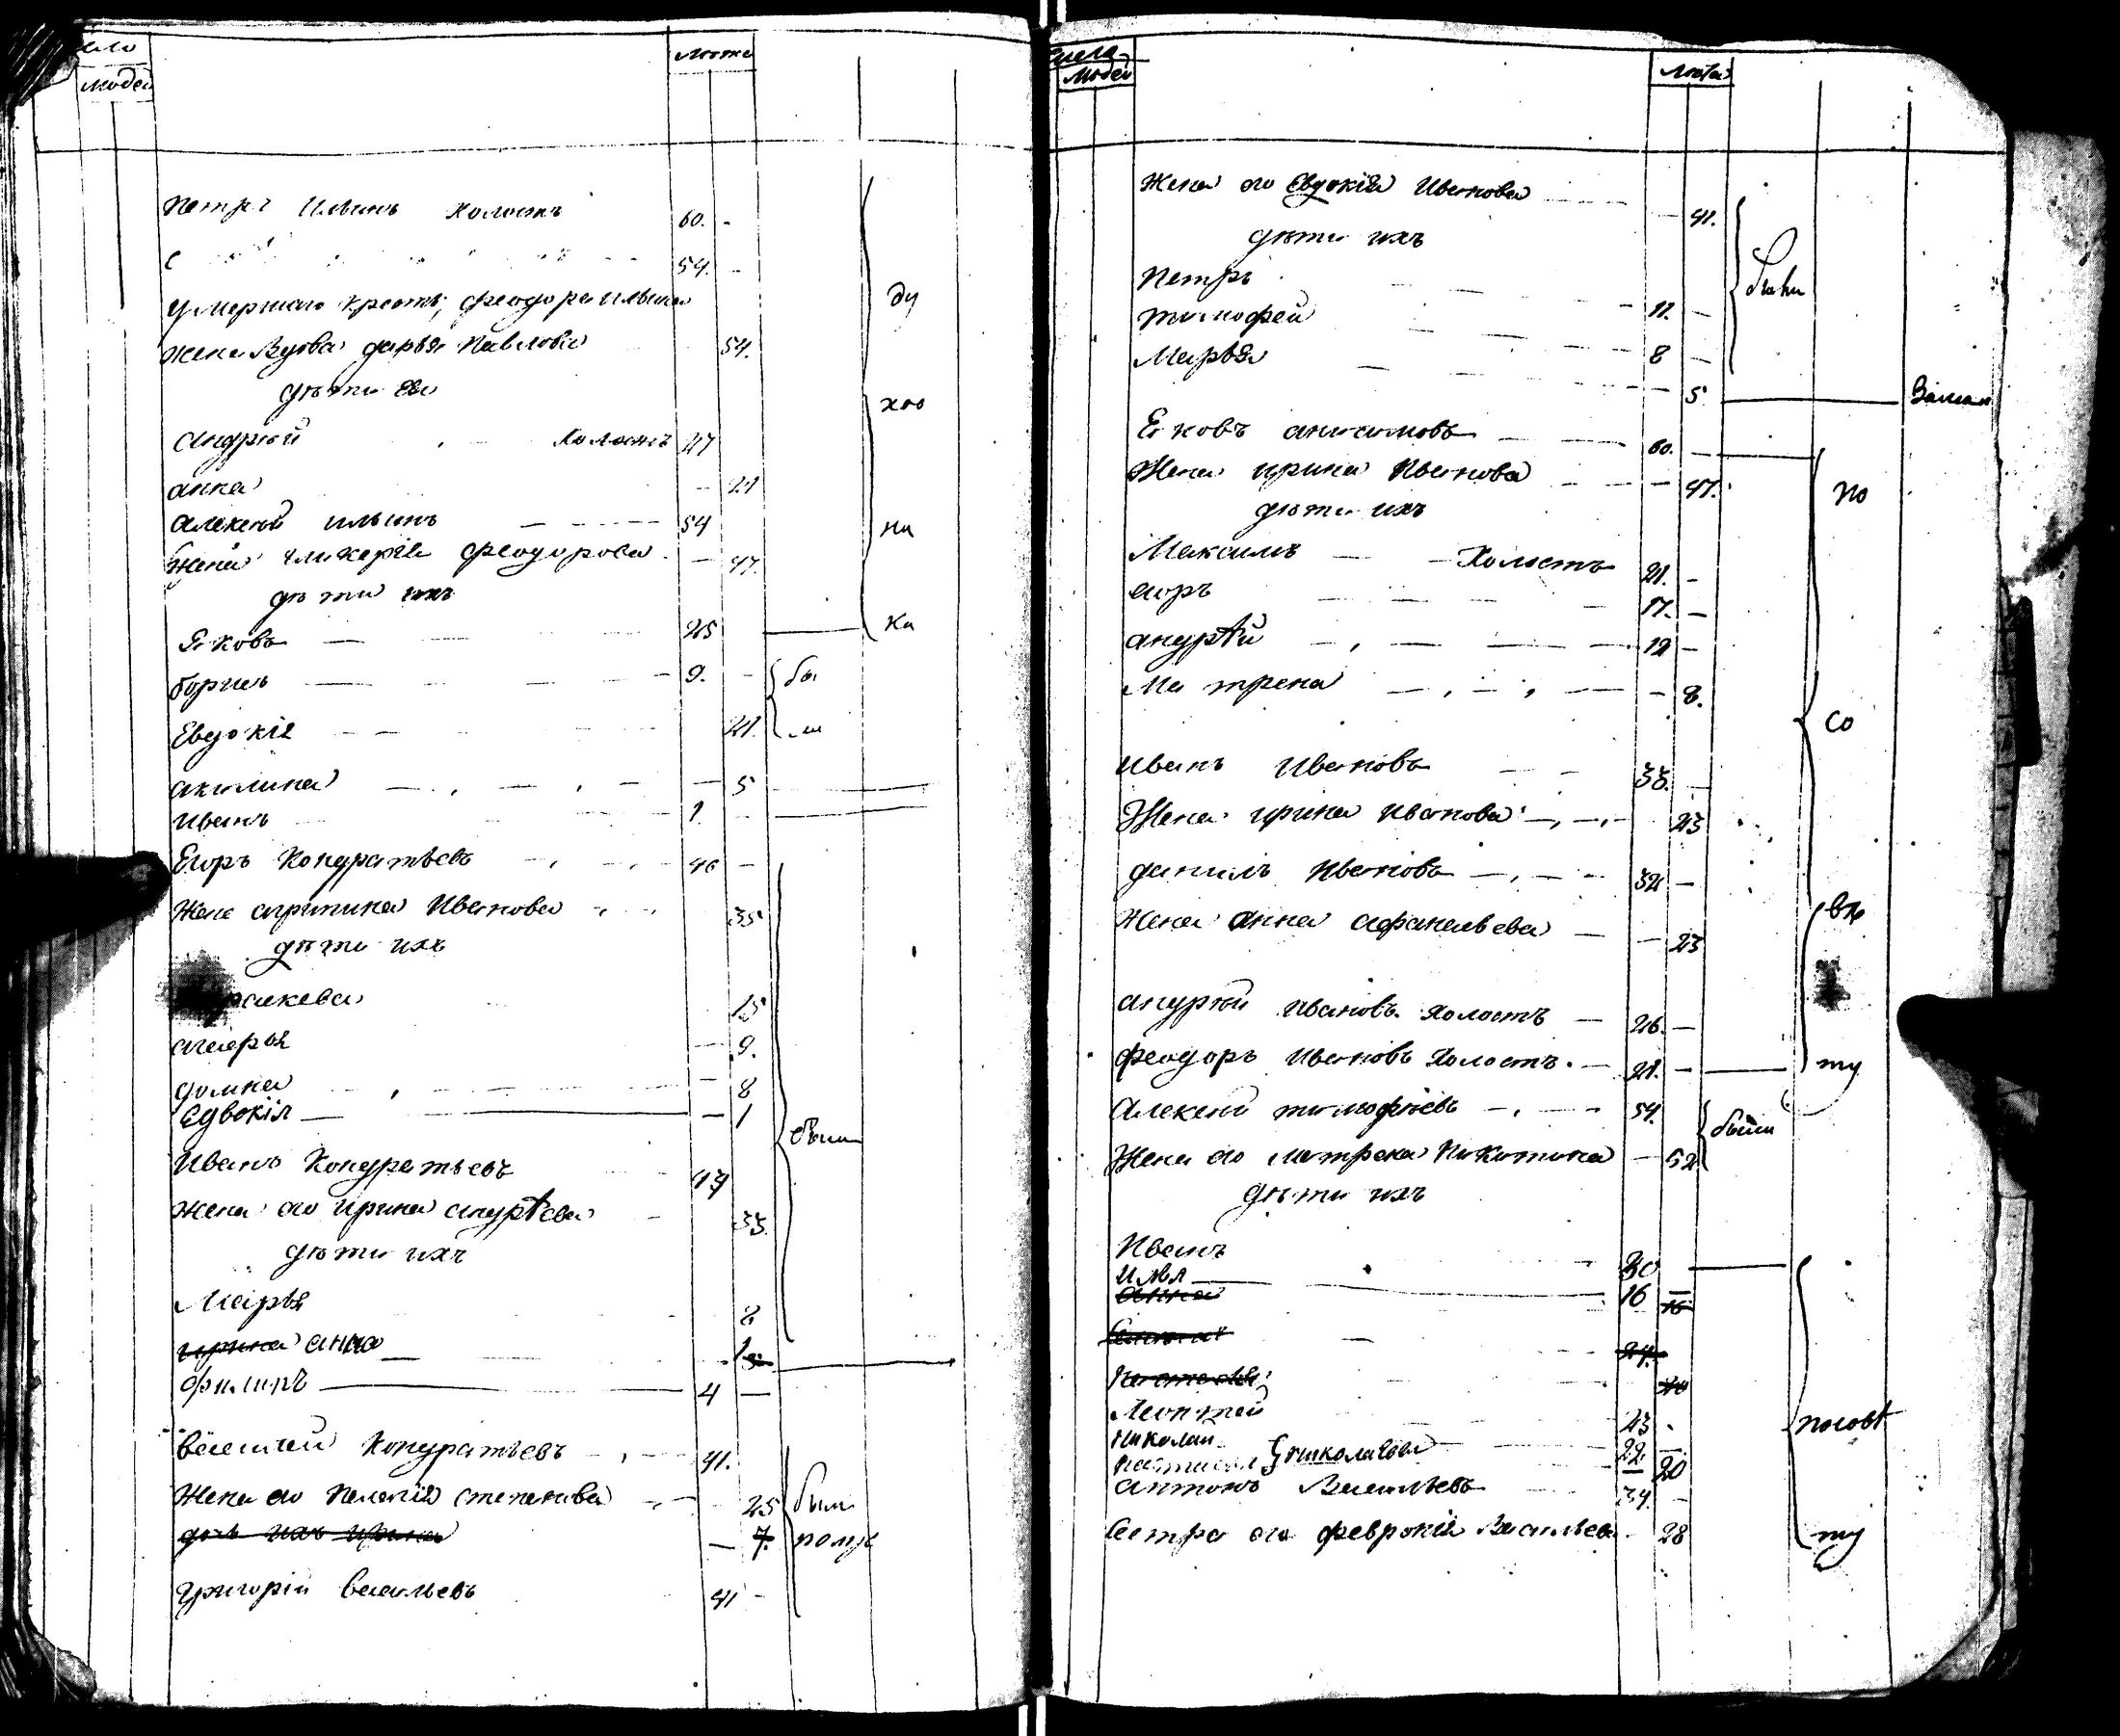 людей
лѣта
Петръ Ильинъ Холостъ 60. -
54. -
умершаго крестъ, Феодора Ильина
жена Вдова дарья Павлова 54.
дѣти Ея
Андрѣй Холостъ 27
анна - 21
Алексѣй ильинъ - 54
жена Гликерія Феодорова - 47.
дѣти ихъ
Яковъ - 25
борисъ - 9. -
Евдокія - 21.
акилина - 5
Иванъ 1. -
Егоръ Кондратьевъ - 46 -
Жена агрипина Иванова - 35
дѣти ихъ
15
9.
домна - 8
Едвокія - 1
Иванъ Кондратьевъ 47
жена его ирина андрѣева - 33.
дѣти ихъ
Марья 8
ирина анна
4 -
Василий Кондратьевъ - 41.
Жена его Пелагія степанова - 25
дочь ихъ ирина - 7.
Григорій Васильевъ 41 -
ду
хов
ни
ка
бы
ли
были
были
полу
числа
людей
лѣта
Жена его Евдокія Иванова - 41.
дѣти ихъ
Петръ - 11. -
тимофей - 8 -
Марья - 5
Яковъ анисимовъ - 60. -
Жена ирина Иванова - 47.
дѣти ихъ
Максимъ - Холостъ 21. -
егоръ - 17. -
андрѣй - 12 -
Матрена - 8.
иванъ Ивановъ - 33. -
Жена ирина иванова - 23
данилъ Ивановъ - 32 -
Жена Анна афанасьева - 23
андрѣй ивановъ холостъ - 26. -
Феодоръ Ивановъ Холостъ. - 21. -
Алексѣй тимофѣевъ - 54.
Жена его матрена Никитина - 52
дѣти ихъ
Иванъ 30
Илья 16
анна 16
24.
Леонтей 23
Николай 22 -
Николаевы - 20
антонъ Васильевъ 34. -
Сестра его февронія Васильева - 28
были
по
со
вѣ
ту
были
ту